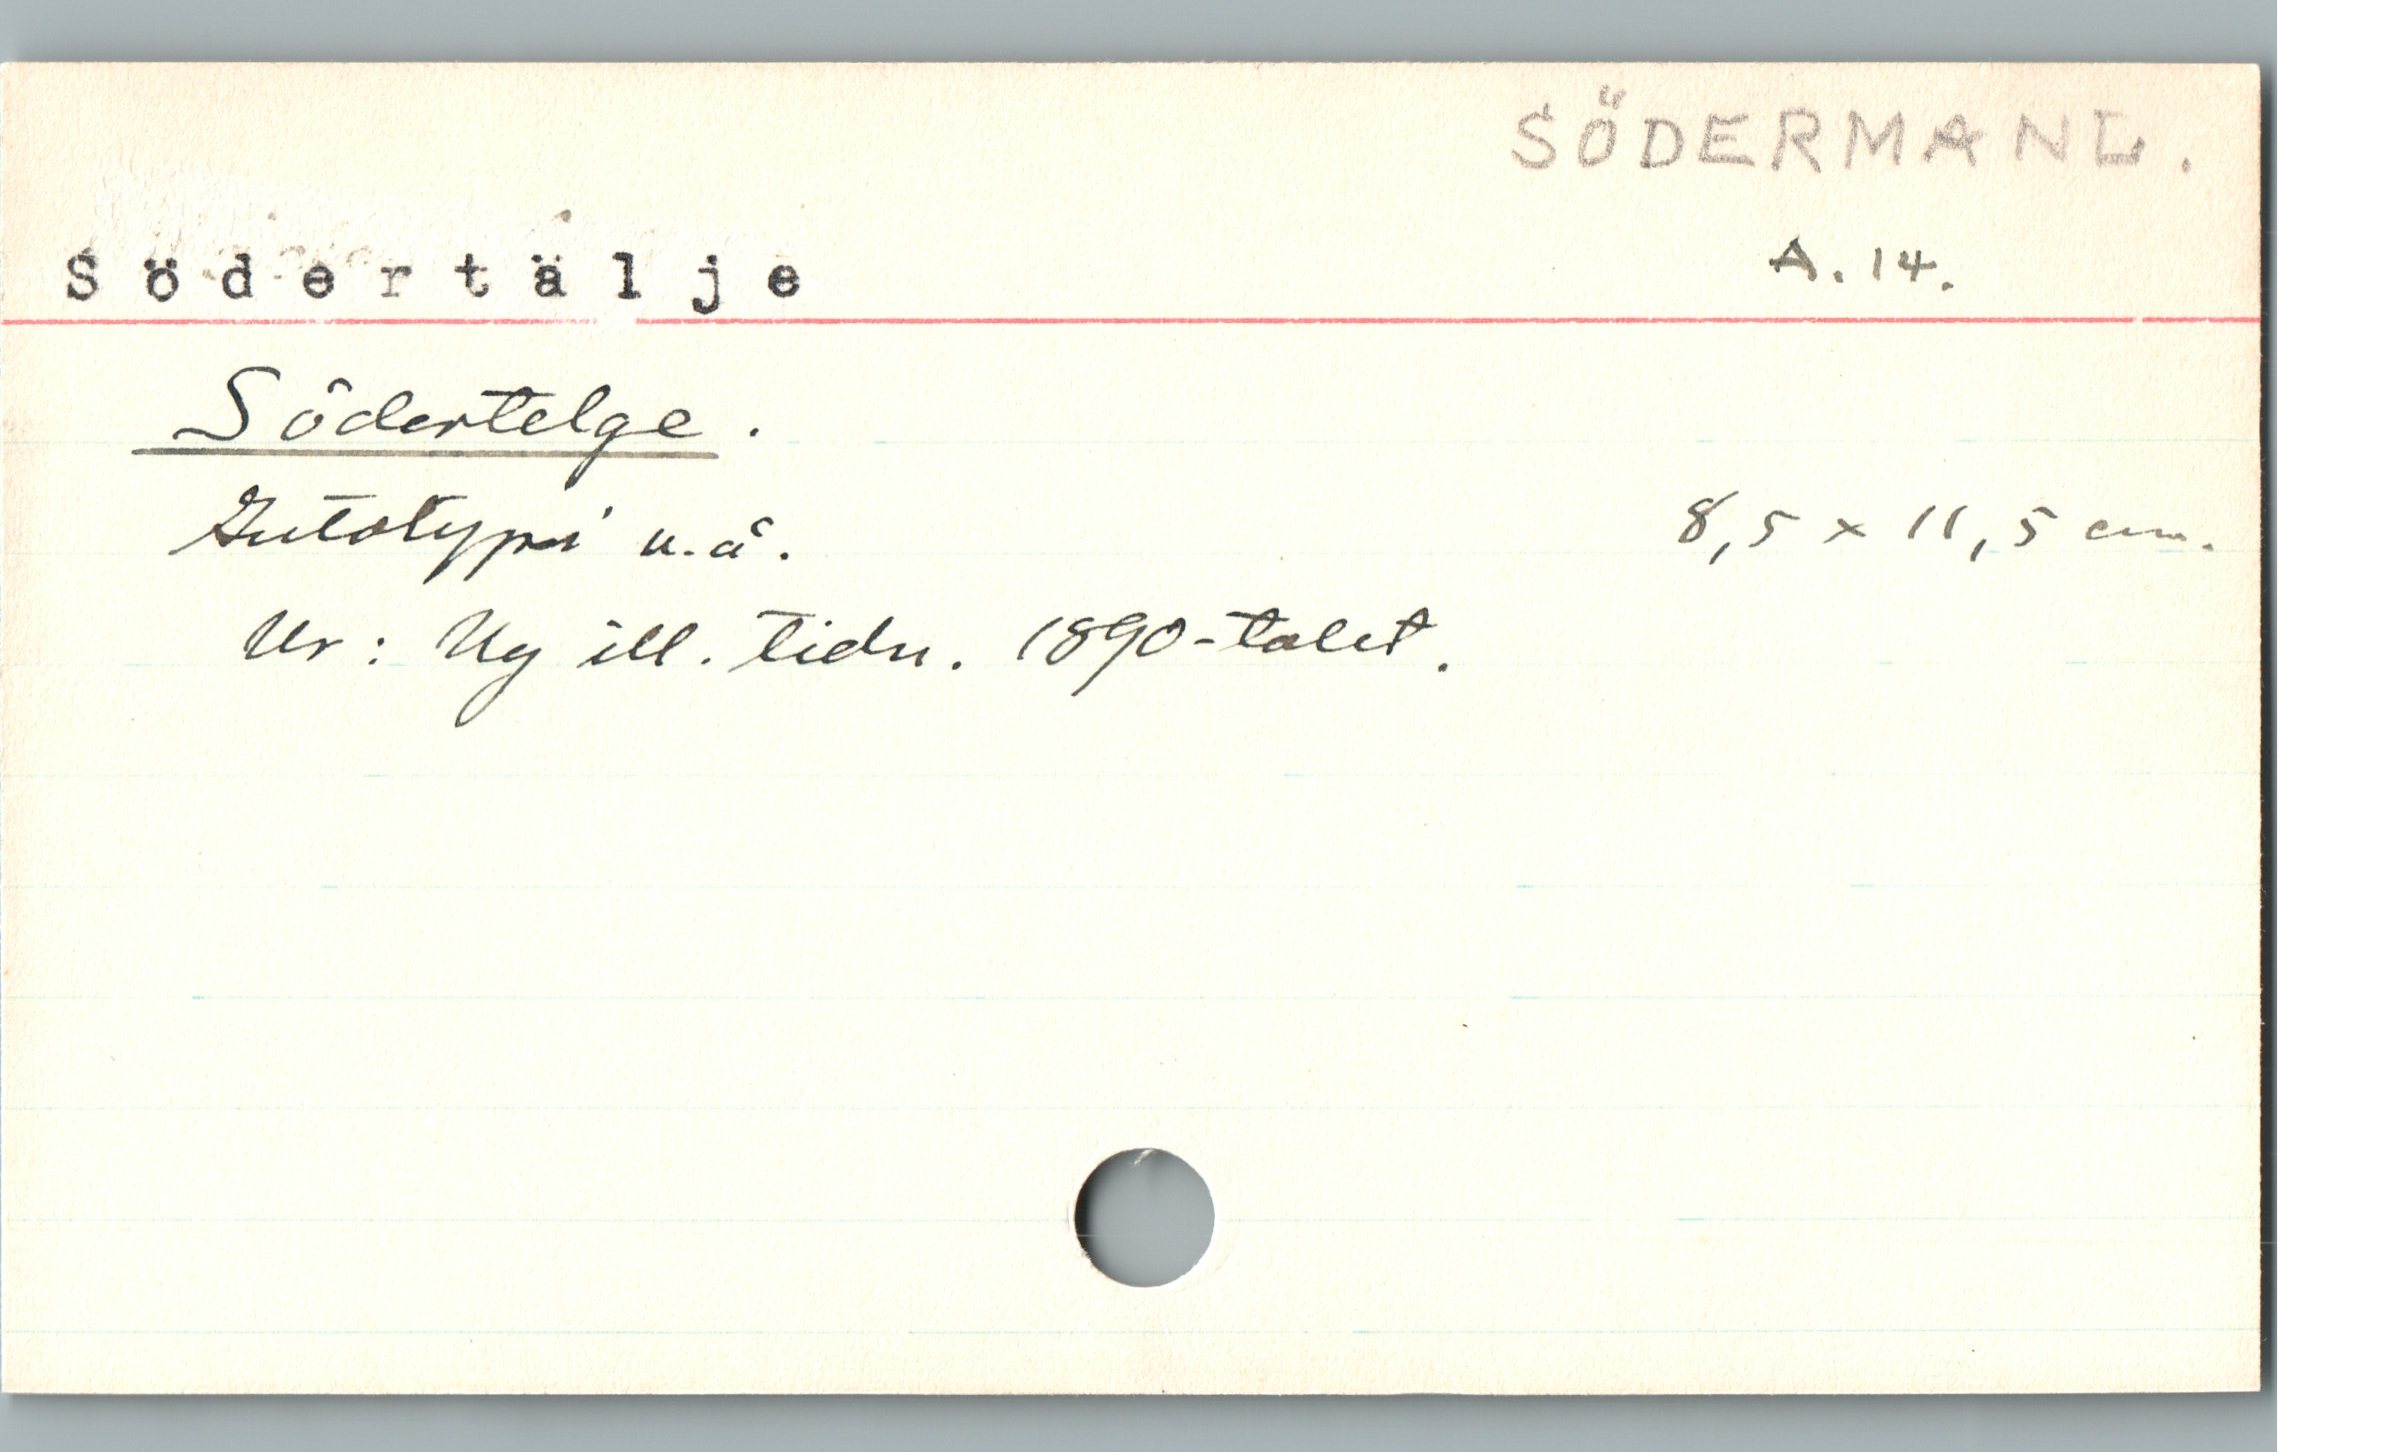 SÖDERMANL.
A.14.
Södertälje
Södertelge.
Autotypi u.å. 8,5 x 11,5 cm.
Ur: Ny ill. tidn. 1890-talet.